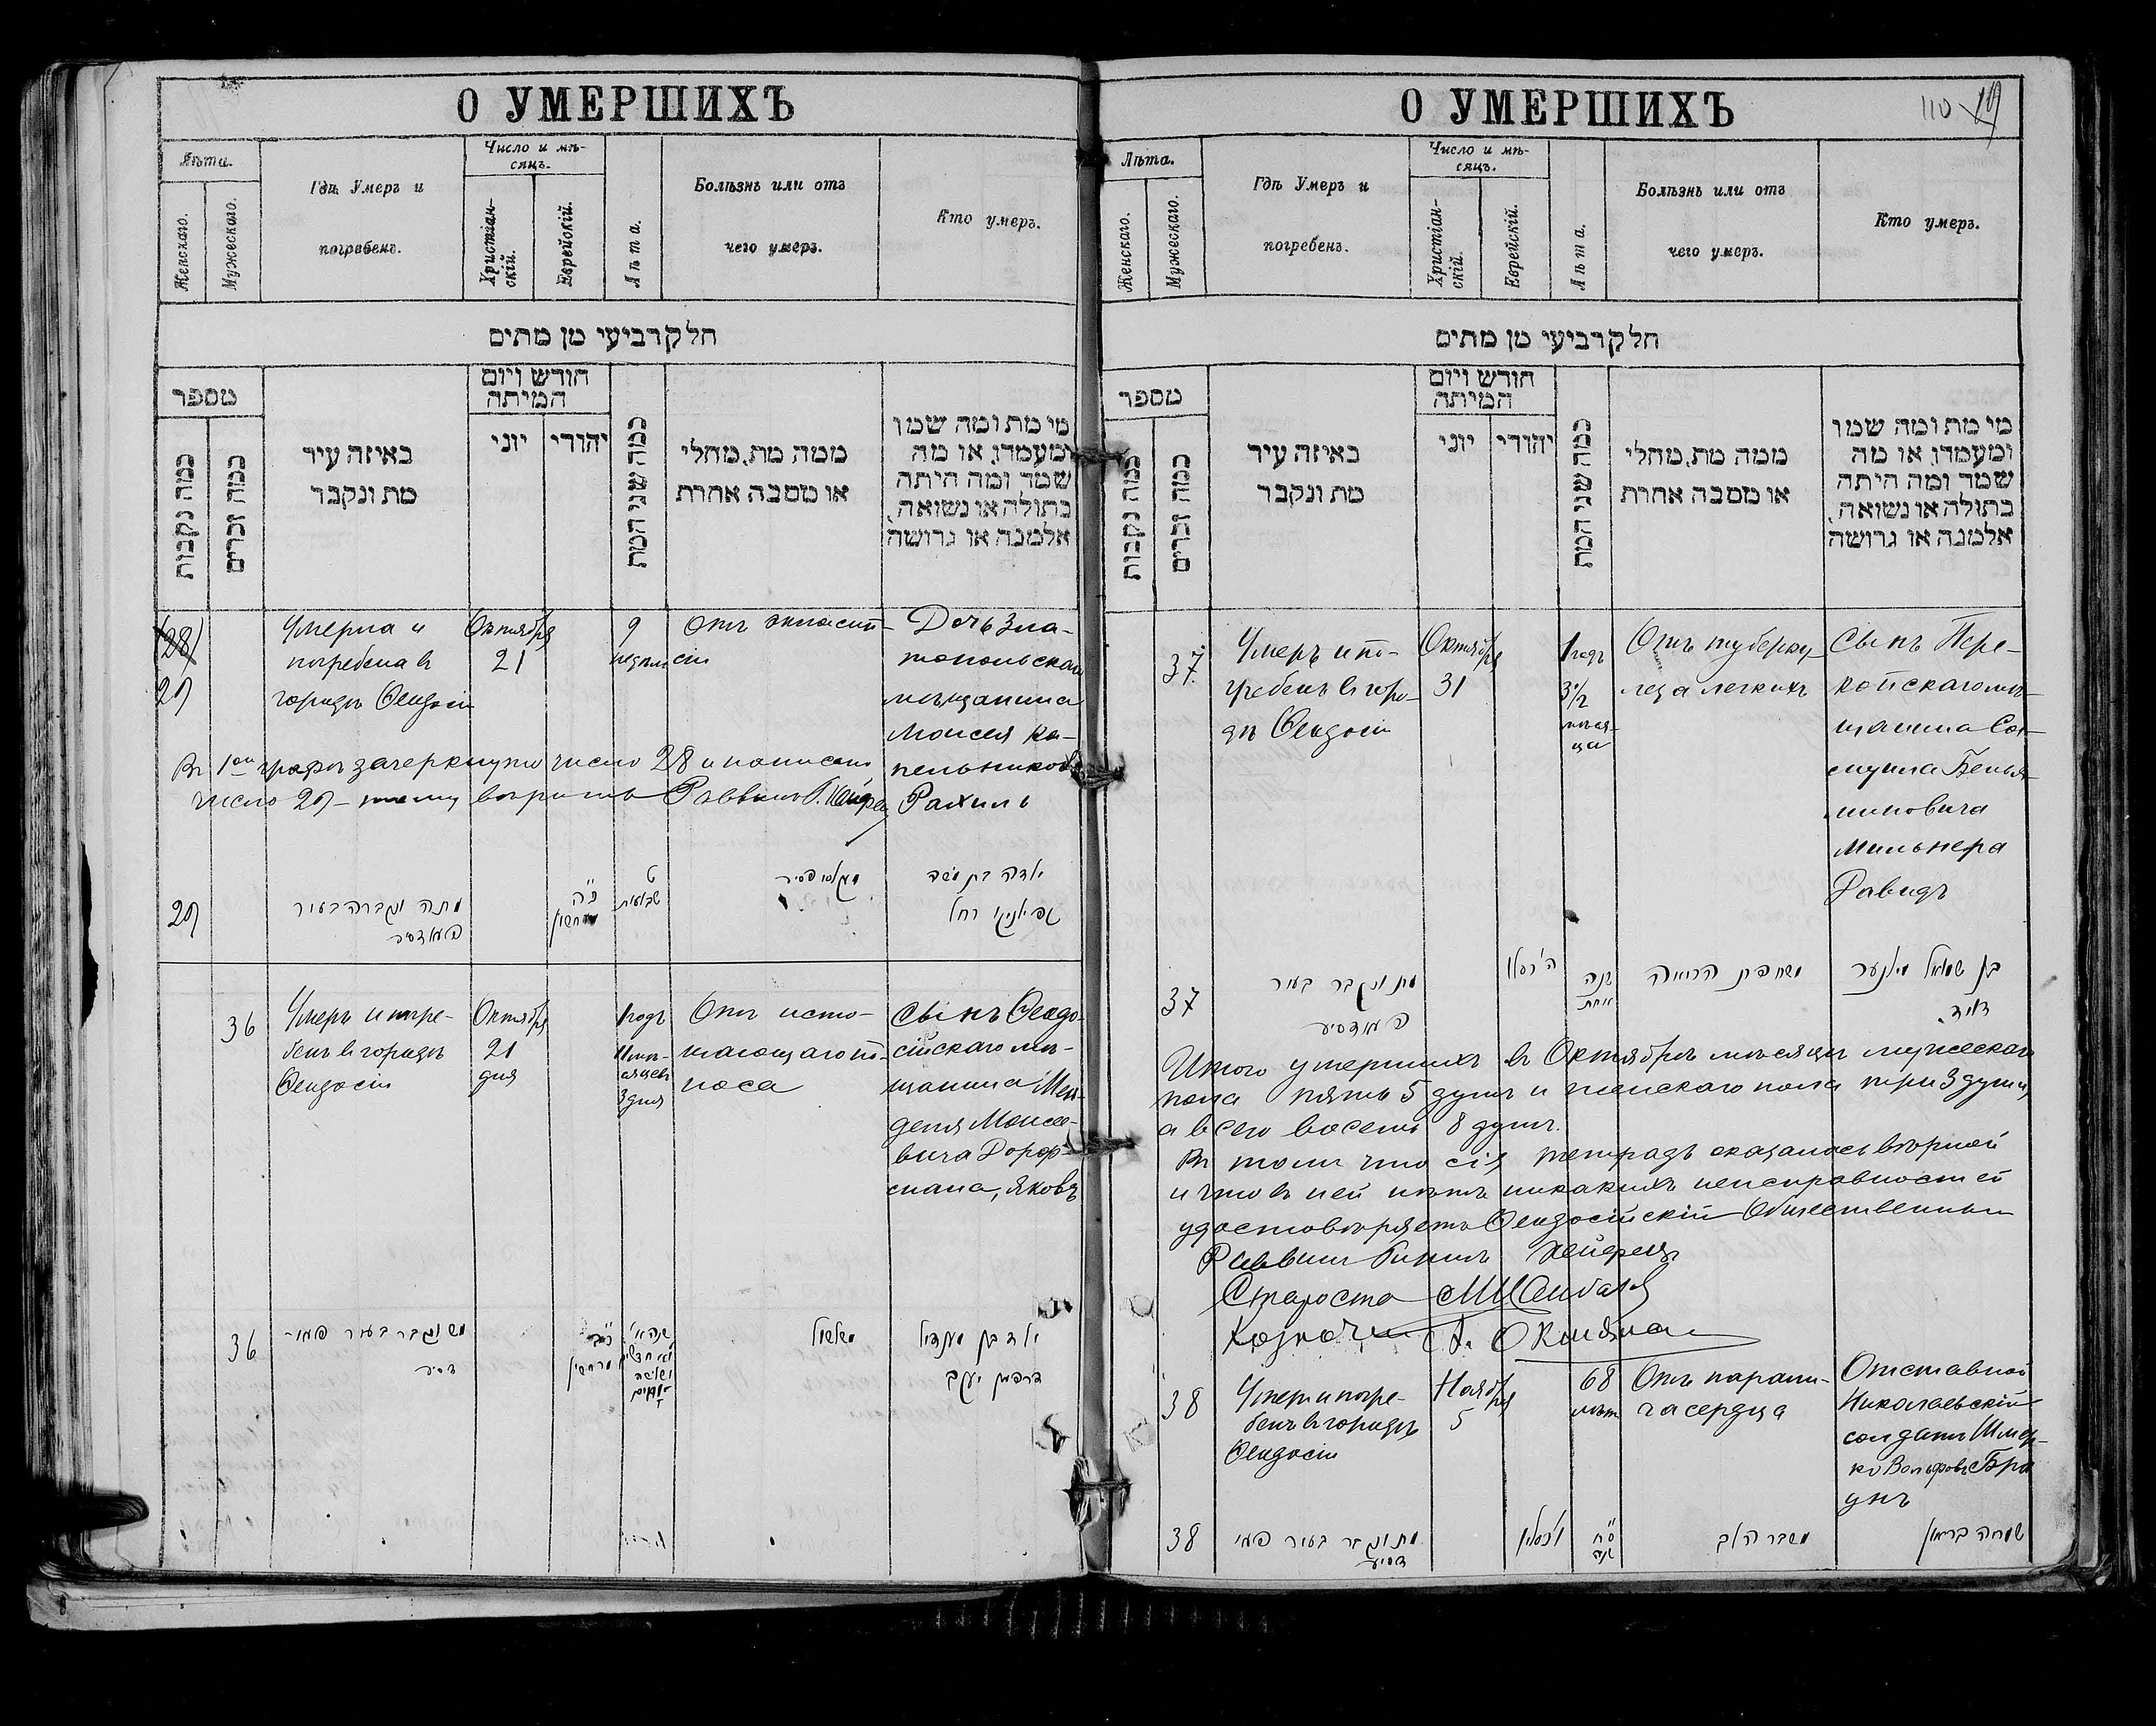 О УМЕРШИХЪ
Лѣта.
Женскаго.
Мужескаго.
Гдѣ Умеръ и
погребенъ.
Число и мѣ-
сяцъ.
Христіан-
скій.
Еврейскій.
Лѣта.
Болѣзнь или отъ
чего умеръ.
Кто умеръ.
חלק רביעי מן מתים
מספר
כמה נקבות
כמה זכרים
באיזה עיר
מת ונקבר
חודש ויום
המיתה
יוני
יהודי
כמה שני המת
ממה מת, מחלי
או מסבה אחרת
מי מת ומה שמו
ומעמדו, או מה
שמד ומה היתה
בתולה או נשואה,
אלמנה או גרושה
(28)
29
Умерла и
погребена въ
городѣ Ѳеодосіи
Октября
21
9
недѣль
Отъ
Дочь Зла-
топольскаго
мѣщанина
Моисея Ка-
пельникова
Рахиль
Въ 1ой графѣ зачеркнуто число 28 и написано
число 29 – тому вѣрить Раввинъ
29
מתה ונקברה בעיר
פעאדסיר
כ״ה
מרחשון
ט
שבועות
ילדה בת משה
רחל
36
Умеръ и погре-
бенъ въ городѣ
Ѳеодосіи
Октября
21
дня
1 годъ
11 мѣ-
сяцевъ
3 дня
Отъ исто-
щающаго по-
носа
Сынъ Ѳеодо-
сійскаго мѣ-
щанина Мен-
деля Моисее-
вича Дорф-
мана, Яковъ
36
מת ונקבר בעיר פעא-
דסיר
מרחשון
שלשול
ילד בן מענדיל
דרפמן יעקב
О УМЕРШИХЪ
110
Лѣта.
Женскаго.
Мужескаго.
Гдѣ Умеръ и
погребенъ.
Число и мѣ-
сяцъ.
Христіан-
скій.
Еврейскій.
Лѣта.
Болѣзнь или отъ
чего умеръ.
Кто умеръ.
חלק רביעי מן מתים
מספר
כמה נקבות
כמה זכרים
באיזה עיר
מת ונקבר
חודש ויום
המיתה
יוני
יהודי
כמה שני המת
ממה מת, מחלי
או מסבה אחרת
מי מת ומה שמו
ומעמדו, או מה
שמד ומה היתה
בתולה או נשואה,
אלמנה או גרושה
37
Умеръ и по-
гребенъ въ горо-
дѣ Ѳеодосіи
Октября
31
1 годъ
3 1/2
мѣся-
ца
Отъ туберку-
леза легкихъ
Сынъ Пере-
копскаго мѣ-
щанина Са-
муила Бенья-
миновича
Мильнера
Давидъ
37
מת ונקבר בעיר
פעאדסיע
ה׳ כסלו
שנה
אחת
משחפת הריאה
בן שמואל מילנער
דוד.
Итого умершихъ въ Октябрѣ мѣсяцѣ мужескаго
пола пять 5 душъ и женскаго пола три 3 души,
а всего восемь 8 душъ.
Въ томъ что сія тетрадь оказалась вѣрной
и что въ ней нѣтъ никакихъ неисправностей
удостовѣряетъ Ѳеодосійскій Общественный
Раввинъ Хейфецъ
Староста
Казначей
38
Умеръ и погре-
бенъ въ городѣ
Ѳеодосіи
Ноября
5
68
лѣтъ
Отъ парали-
ча сердца
Отставной
Николаевскій
солдатъ Шмер-
ко Вольфовъ Бра
унъ
38
מת ונקבר בעיר פעי
דסיע
כסלו
ס״ח
שנה
משבר הלב